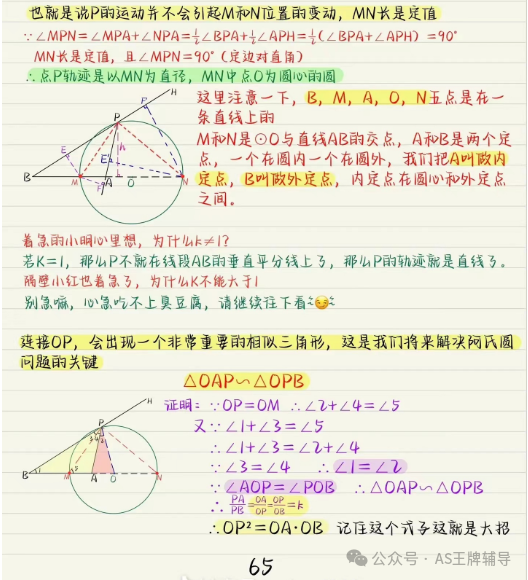 也就是说P的运动并不会引起M和N位置的变动，MN长是定值
∵∠MPN=∠MPA+∠NPA=½∠BPA+½∠APH=½(∠BPA+∠APH)=90°
MN长是定值，且∠MPN=90°(定边对直角)
∴点P轨迹是以MN为直径，MN中点O为圆心的圆
这里注意一下，B，M，A，O，N五点是在一
条直线上的
M和N是⊙O与直线AB的交点，A和B是两个定
点，一个在圆内一个在圆外，我们把A叫做内
定点，B叫做外定点，内定点在圆心和外定点
之间。
H
F
P
h
E
E
B
M
F
A
O
N
着急的小明心里想，为什么k≠1?
若K=1，那么P不就在线段AB的垂直平分线上了，那么P的轨迹就是直线了。
隔壁小红也着急了，为什么K不能大于1
别急嘛，心急吃不上臭豆腐，请继续往下看~😏
连接OP，会出现一个非常重要的相似三角形，这是我们将来解决阿氏圆
问题的关键
△OAP∽△OPB
证明：∵OP=OM ∴∠2+∠4=∠5
又∵∠1+∠3=∠5
∴∠1+∠3=∠2+∠4
∵∠3=∠4 ∴∠1=∠2
∵∠AOP=∠POB ∴△OAP∽△OPB
∴PA/PB=OA/OP=OP/OB=k
∴OP²=OA·OB 记住这个式子这就是大招
H
P
3 4 2
B
1
5
M
A
O
N
65
公众号·AS王牌辅导